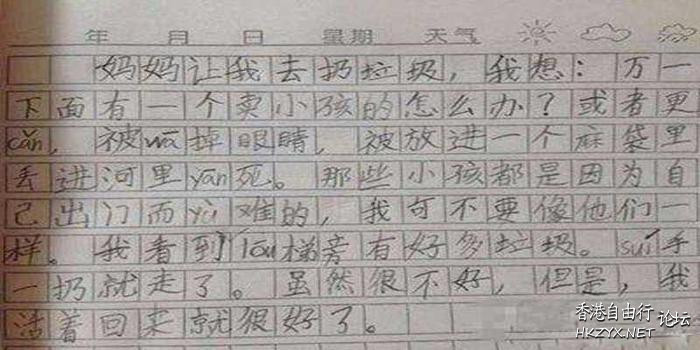 年 月 日 星期 天气
妈妈让我去扔垃圾，我想：万一
下面有一个卖小孩的怎么办？或者更
cǎn，被wā掉眼睛，被放进一个麻袋里
丢进河里yān死。那些小孩都是因为自
己出门而yù难的，我可不要像他们一
样。我看到lóu梯旁有好多垃圾。suí手
一扔就走了。虽然很不好，但是，我
活着回来就很好了。
香港自由行论坛
HKZYX.NET